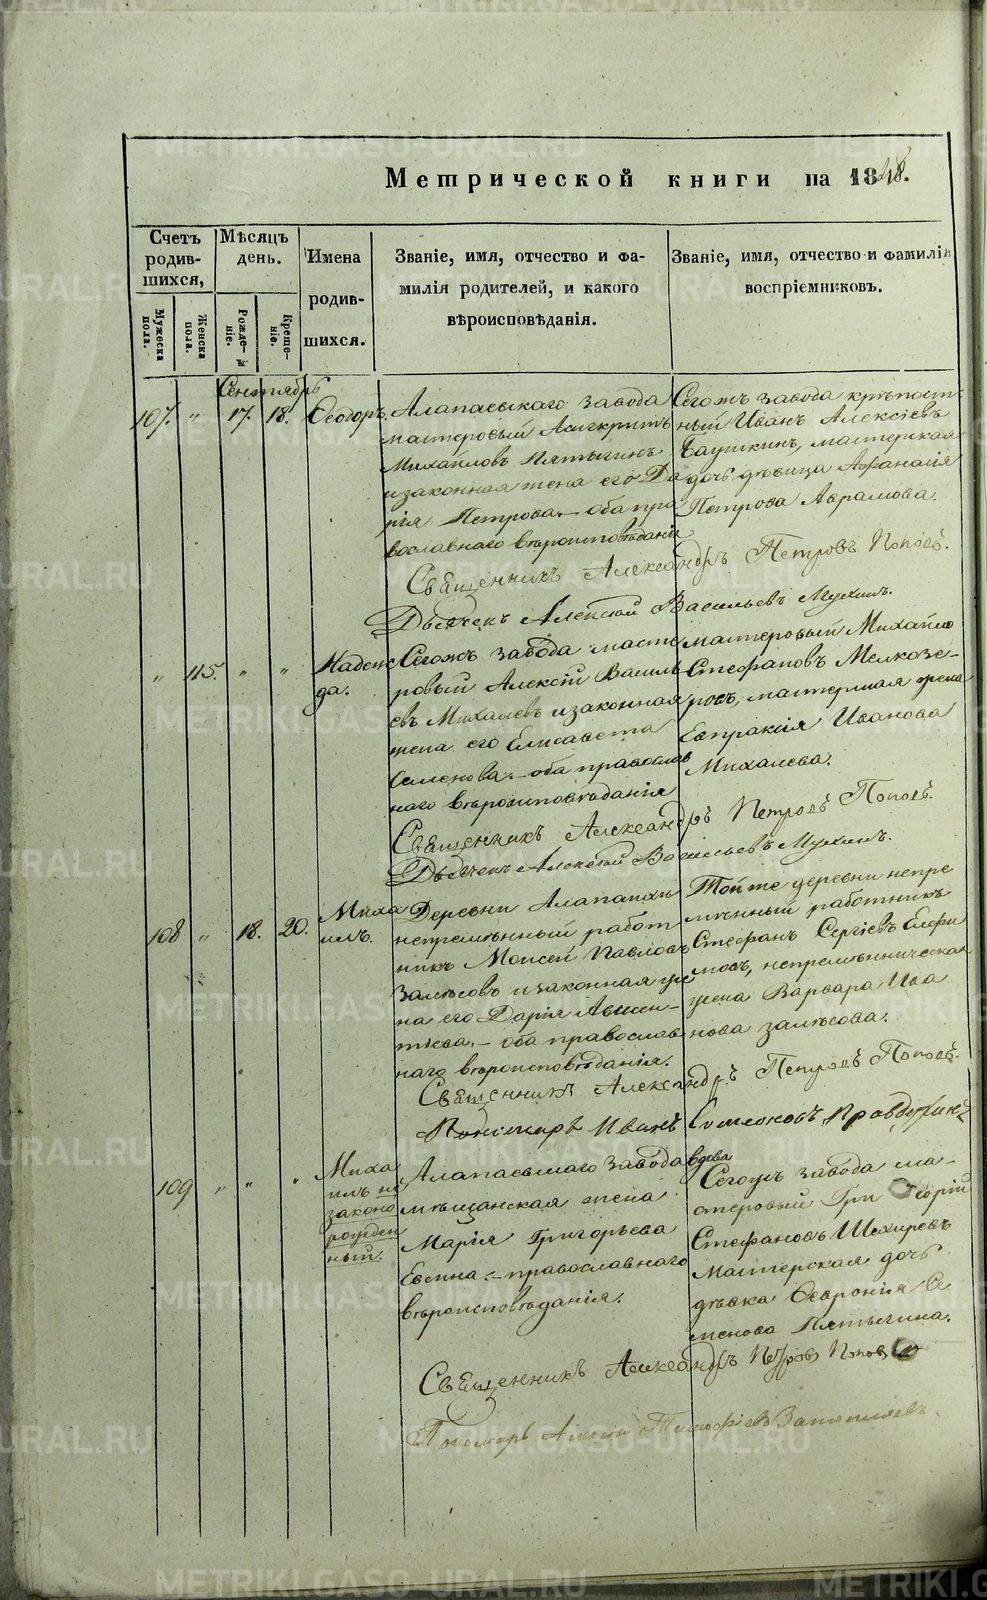 Метрической книги на 1848.
Счетъ родив-шихся,
Мужеска пола.
Женска пола.
Мѣсяцъ день.
Рожде-ніе.
Креще-ніе.
Имена родив-шихся.
Званіе, имя, отчество и фа-
милія родителей, и какого
вѣроисповѣданія.
Званіе, имя, отчество и фамилія
воспріемниковъ.
Сентябрь
107. " 17. 18. Ѳеодоръ.
Алапаевскаго завода
мастеровый Асигкритъ
Михайловъ Пятыгинъ
и законная жена его Да
рія Петрова. – оба пра
вославнаго вѣроисповѣданія
Сегожъ завода крѣпост-
ный Иванъ Алексіевъ
Баушкинъ, мастерская
дочь дѣвица Афанасія
Петрова Аврамова.
Священникъ Александръ Петровъ Поповъ.
Дьячекъ Алексѣй Васильевъ Мухинъ.
" 115. " " Надеж
да.
Сегожъ завода масте
ровый Алексій Василь
евъ Михалевъ и законная
жена его Елисавета
Семенова – оба православ
наго вѣроисповѣданія
мастеровый Михайло
Стефановъ Мелкозе-
ровъ, мастерская жена
Евпраксія Иванова
Михалева.
Священникъ Александръ Петровъ Поповъ.
Дьячекъ Алексѣй Васильевъ Мухинъ.
108 " 18. 20. Миха
илъ.
Деревни Алапаихи
непремѣнный работ
никъ Моисей Павловъ
Замѣсовъ и законная же
на его Дарія Авксен-
тіева, – оба православ
наго вѣроисповѣданія.
Той же деревни непре
мѣнный работникъ
Стефанъ Сергіевъ Елфи
мовъ, непремѣнническая
жена Варвара Ива
нова Замѣсова.
Священникъ Александръ Петровъ Поповъ.
Пономарь Иванъ Симеоновъ
109 " " " Миха
илъ не
законо
рожден
ный.
Алапаевскаго завода вдова
мѣщанская жена
Марія Григорьева
Евсина – православнаго
вѣроисповѣданія.
Сегожъ завода ма-
стеровый
Стефановъ Шехиревъ
мастерская дочь
дѣвка Ѳевронія Се
менова Пятыгина.
Священникъ Александръ Петровъ Поповъ
Пономарь Алексѣй Тимофѣевъ
METRIKI.GASO-URAL.RU